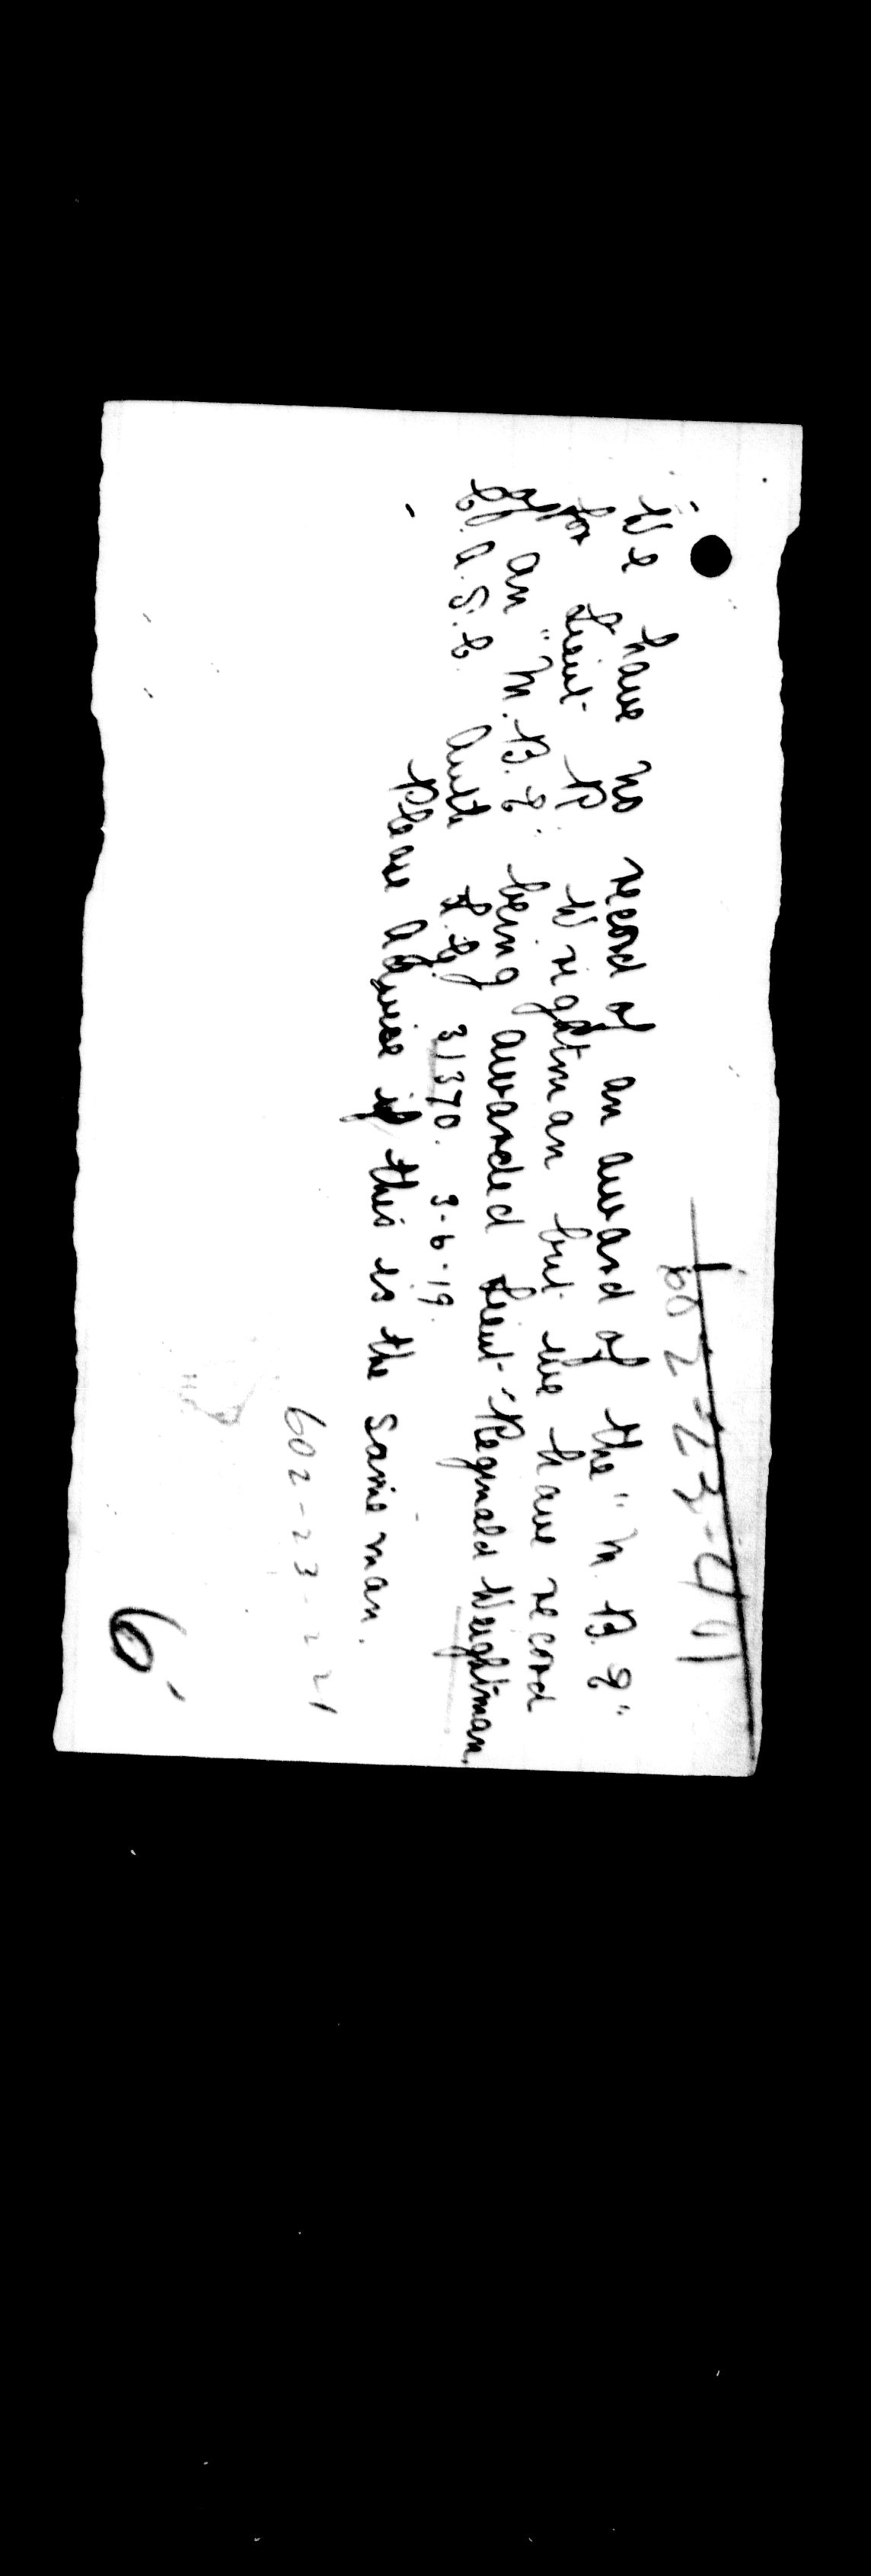 602-23-411
We have no record of an award of the "M.B.E"
to Lieut R. Wrightman but we have record
of an "M.B.E. being awarded Lieut Reginald Weightman,
C.A.S.C. Auth L.G. 31370. 3-6-19.
Please advise if this is the same man.
602-23-221
6